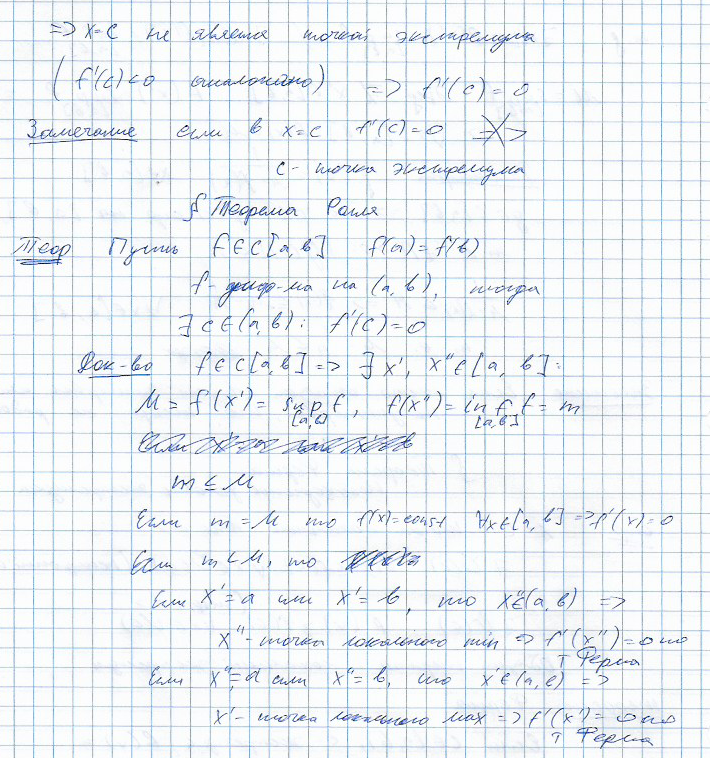 => x=c не является точкой экстремума
(f'(c)<0 аналогично) => f'(c)=0
Замечание если в x=c f'(c)=0 ≠>
c - точка экстремума
§ Теорема Ролля
Теор Пусть f∈C[a,b] f(a)=f(b)
f - диф-ма на (a,b), тогда
∃ c∈(a,b): f'(c)=0
Док-во f∈C[a,b] => ∃ x', x''∈[a, b]:
M = f(x') = sup f, f(x'') = inf f = m
[a,b] [a,b]
m ≤ M
Если m = M то f(x)=const ∀x∈[a,b] => f'(x)=0
Если m < M, то
Если x'=a или x'=b, то x''∈(a,b) =>
x'' - точка локального min => f'(x'')=0 по
т Ферма
Если x''=a или x''=b, то x'∈(a,b) =>
x' - точка локального max => f'(x')=0 по
т Ферма